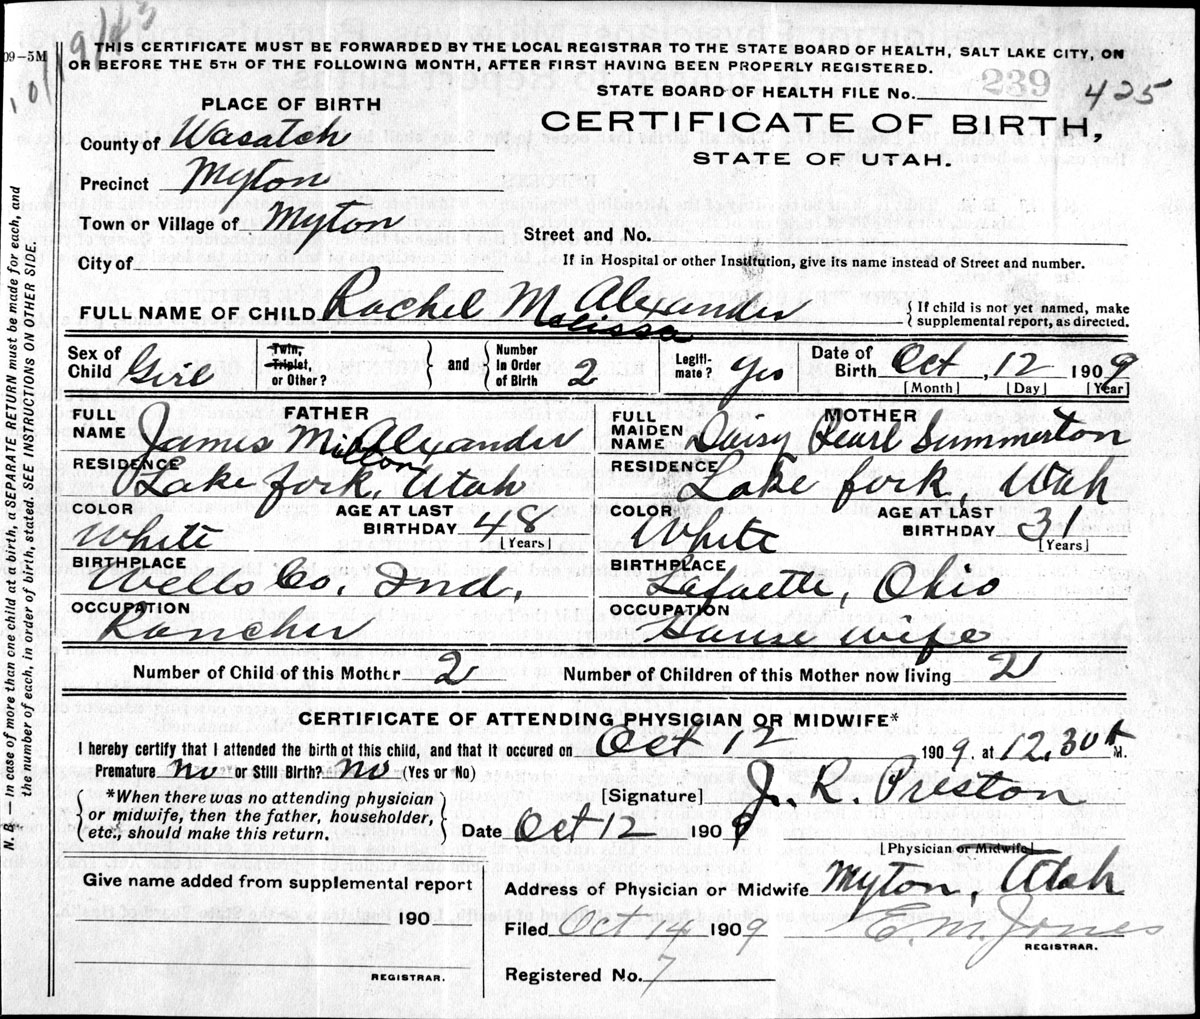 9143
09-5M
101
THIS CERTIFICATE MUST BE FORWARDED BY THE LOCAL REGISTRAR TO THE STATE BOARD OF HEALTH, SALT LAKE CITY, ON
OR BEFORE THE 5TH OF THE FOLLOWING MONTH, AFTER FIRST HAVING BEEN PROPERLY REGISTERED.
STATE BOARD OF HEALTH FILE No. 239 425
PLACE OF BIRTH
CERTIFICATE OF BIRTH,
STATE OF UTAH.
County of Wasatch
Precinct Myton
Town or Village of Myton
Street and No.
City of
If in Hospital or other Institution, give its name instead of Street and number.
FULL NAME OF CHILD Rachel M Alexander
elissa
{ If child is not yet named, make
supplemental report, as directed.
Sex of Child Girl
Twin, Triplet, or Other?
and
Number In Order of Birth 2
Legiti-mate? yes
Date of Birth Oct, 12 1909
[Month] [Day] [Year]
FATHER
FULL NAME James M Alexander
ilton
RESIDENCE Lake fork, Utah
COLOR White
AGE AT LAST BIRTHDAY 48 [Years]
BIRTHPLACE Wells Co, Ind,
OCCUPATION Rancher
MOTHER
FULL MAIDEN NAME Daisy Pearl Summerton
RESIDENCE Lake fork, Utah
COLOR White
AGE AT LAST BIRTHDAY 31 [Years]
BIRTHPLACE Lafaette, Ohio
OCCUPATION House wife
Number of Child of this Mother 2
Number of Children of this Mother now living 2
CERTIFICATE OF ATTENDING PHYSICIAN OR MIDWIFE*
I hereby certify that I attended the birth of this child, and that it occured on Oct 12 1909 at 12.30 A M.
Premature no or Still Birth? no (Yes or No)
*When there was no attending physician
or midwife, then the father, householder,
etc., should make this return.
[Signature] J. R. Preston
Date Oct 12 1909
[Physician or Midwife]
Give name added from supplemental report
190
REGISTRAR.
Address of Physician or Midwife Myton, Utah
Filed Oct 14 1909 E. M. Jones
REGISTRAR.
Registered No. 7
N. B. — In case of more than one child at a birth, a SEPARATE RETURN must be made for each, and
the number of each, in order of birth, stated. SEE INSTRUCTIONS ON OTHER SIDE.